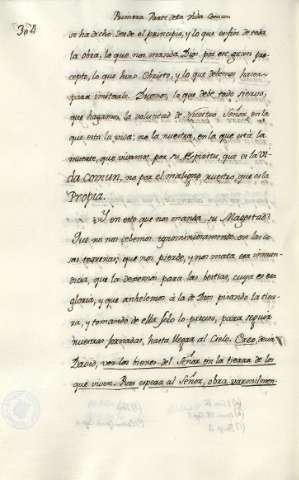 304
Primera Parte de la Vida Comun
se ha dicho desde el principio, y lo que es fin de toda
la obra, lo que nos manda Dios por este gran pre-
cepto, lo que hizo Christo, y lo que debemos hacer
para imitarle. Bueno, lo que debe todo siervo,
que hagamos la voluntad de Nuestro Señor, en la
que está la vida: no la nuestra, en la que está la
muerte, que vivamos por su Espiritu, que es la Vi-
da Comun, no por el maligno nuestro, que es la
Propia.
Y en esto que nos manda su Magestad?
Que no nos cebemos ignominiosamente en las co-
sas terrenas; que nos pierde, y nos mata esa inmun-
dicia, que la dexemos para las bestias, cuya es esa
gloria, y que anhelemos á la de Dios pisando la tier-
ra, y tomando de ella solo lo preciso, para seguir
nuestras jornadas, hasta llegar al Cielo. Creo, decia
David, ver los bienes del Señor en la tierra de los
que viven. Pues espera al Señor, obra varonilmen-